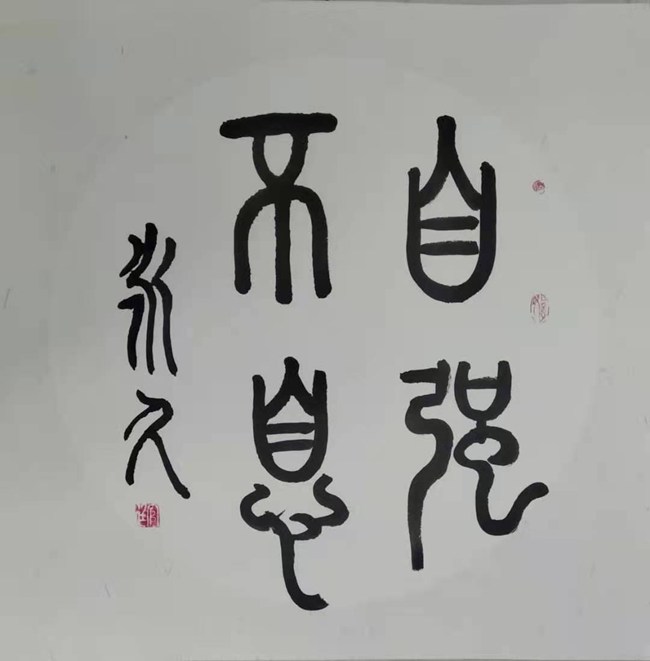 自强
不息
永久